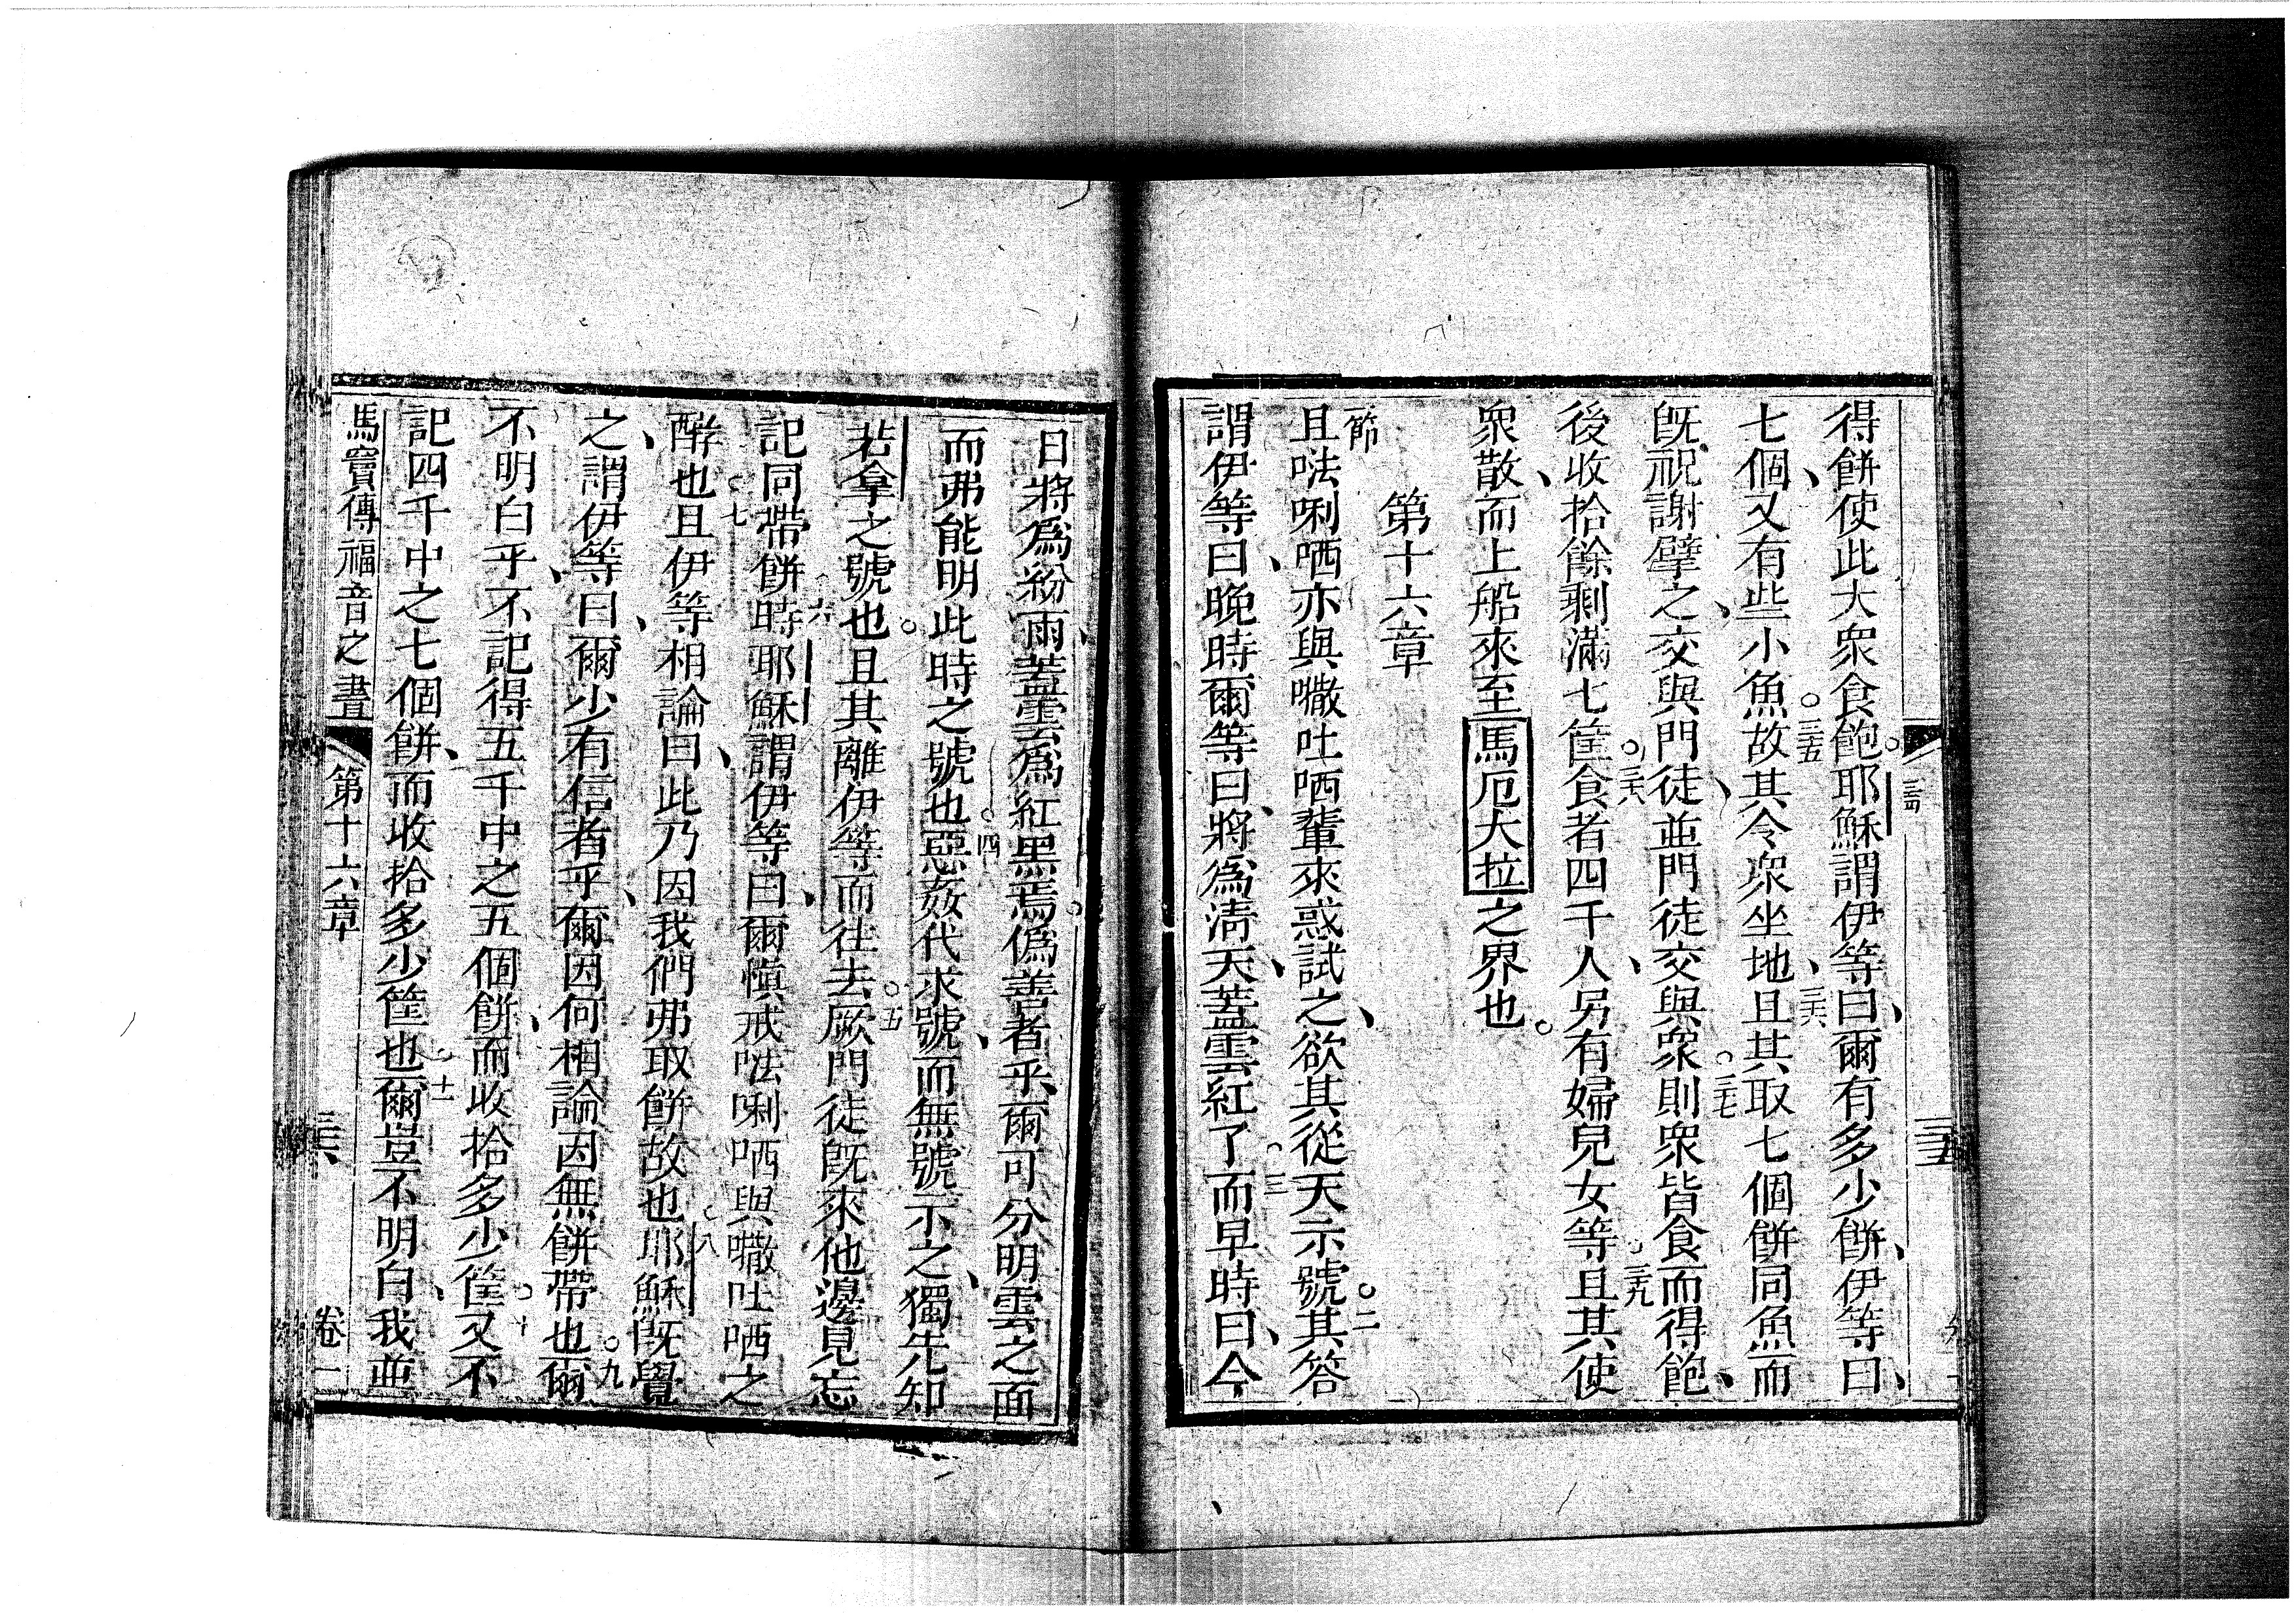 三十四
三十五
得餅使此大衆食飽。耶穌謂伊等、曰爾有多少餅、伊等曰、
七個、又有些小魚。三十五故其令衆坐地、三十六且其取七個餅同魚而
旣、祝謝擘之、交與門徒、並門徒交與衆。三十七則衆皆食而得飽、
後收拾餘剩滿七筐。三十八食者四千人、另有婦兒女等。三十九且其使
衆散、而上船來至馬厄大拉之界也。
第十六章
節
且㗀唎哂亦與㘔吐哂輩來惑試之、欲其從天示號。二其答
謂伊等、曰晚時爾等曰、將爲淸天、蓋雲紅了。三而早時曰、今
日將爲紛雨、蓋雲爲紅黑焉。僞善者乎、爾可分明雲之面
而弗能明此時之號也。四惡姦代求號、而無號示之、獨先知
若拿之號也。且其離伊等而往去。五厥門徒旣來他邊見忘
記同帶餅時。六耶穌謂伊等、曰爾愼戒㗀唎哂與㘔吐哂之
酵也。七且伊等相論、曰此乃因我們弗取餅故也。八耶穌旣覺
之、謂伊等、曰爾少有信者乎、爾因何相論因無餅帶也。九爾
不明白乎、不記得五千中之五個餅、而收拾多少筐。十又不
記四千中之七個餅、而收拾多少筐也。十一爾豈不明白、我並
馬竇傳福音之書 第十六章 三十六 卷一